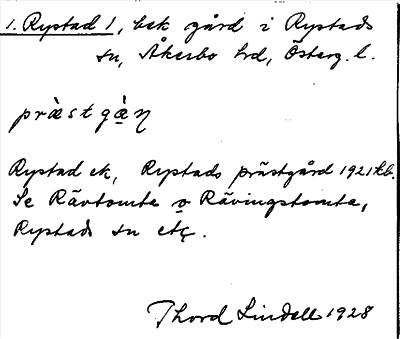 1. Rystad 1, bek gård i Rystads
sn, Åkerbo hd, Österg. l.
præ̀st gæ̀ṇ
Rystad ek, Rystads prästgård 1921 kb.
Se Rävtomta o Rävingstomta,
Rystads sn etc.
Thord Lindell 1928